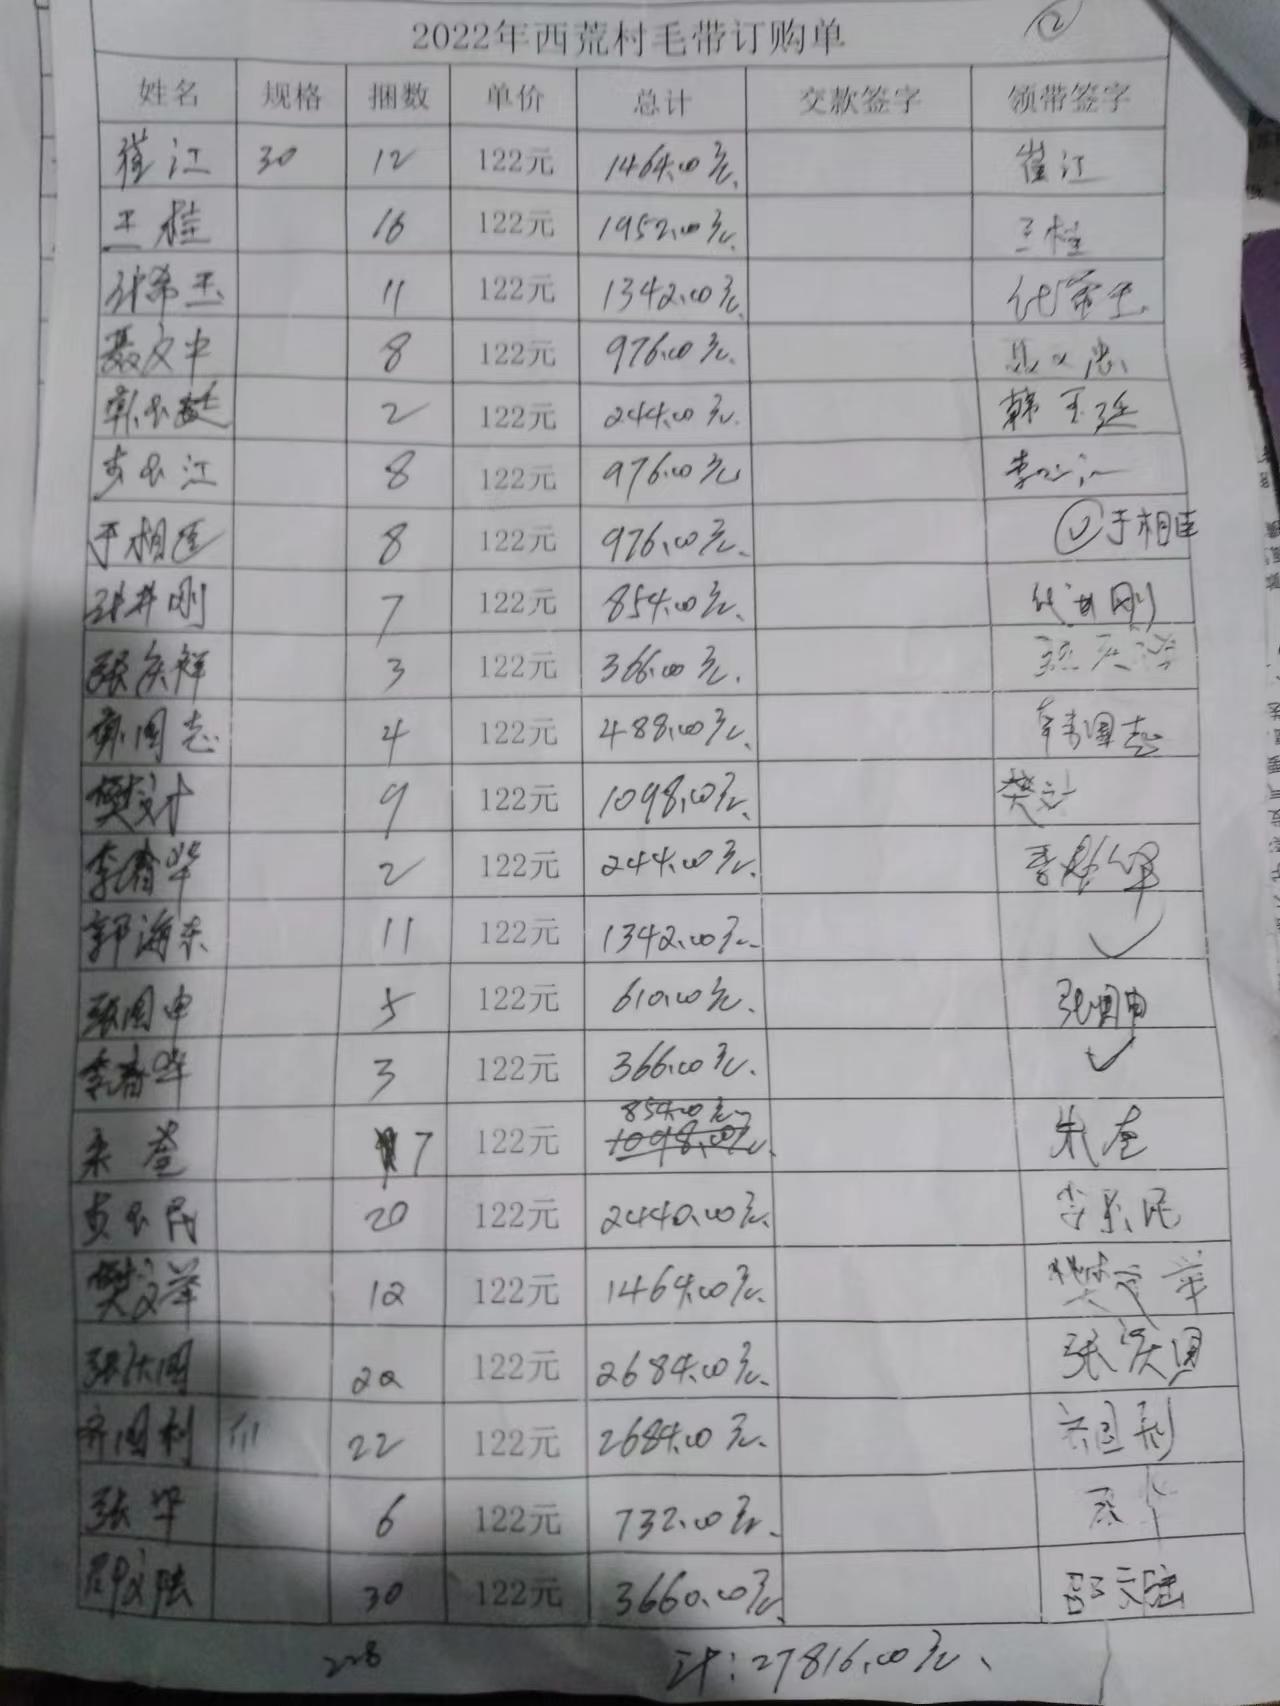 2022年西荒村毛带订购单 ②
姓名 规格 捆数 单价 总计 交款签字 领带签字
崔江 30 12 122元 1464.00元. 崔江
王桂 16 122元 1952.00元. 王桂
希玉 11 122元 1342.00元.
聂文中 8 122元 976.00元.
2 122元 244.00元. 韩玉廷
江 8 122元 976.00元 李
于相臣 8 122元 976.00元. 于相臣
井刚 7 122元 854.00元. 刚
张庆祥 3 122元 366.00元. 张庆祥
国志 4 122元 488.00元. 韩国志
樊文计 9 122元 1098.00元. 樊文计
李春华 2 122元 244.00元. 李
郭海东 11 122元 1342.00元.
张国申 5 122元 610.00元. 张国申
李春华 3 122元 366.00元.
854.00元
朱 7 122元 1098.00元. 朱
民 20 122元 2440.00元. 李 民
樊文举 12 122元 1464.00元. 樊文举
张庆国 22 122元 2684.00元. 张庆国
齐国利 22 122元 2684.00元. 齐国利
张华 6 122元 732.00元. 张华
邵文陆 30 122元 3660.00元. 邵文陆
228 计:27816.00元.